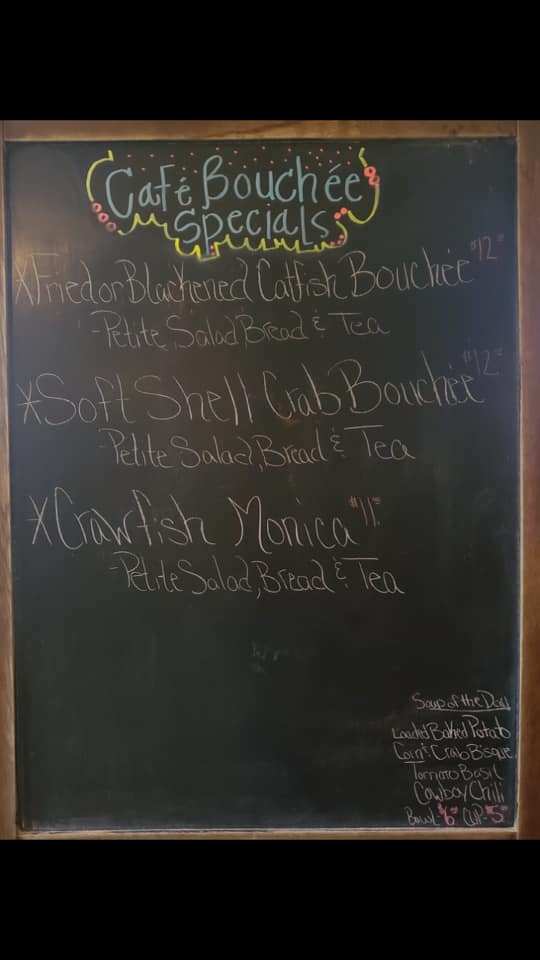 Café Bouchée
Specials
*Fried or Blackened Catfish Bouchée $12.00
-Petite Salad Bread & Tea
*Soft Shell Crab Bouchée $12.00
-Petite Salad, Bread & Tea
*Crawfish Monica $11.00
-Petite Salad, Bread & Tea
Soup of the Day
Loaded Baked Potato
Corn & Crab Bisque
Tomato Basil
Cowboy Chili
Bowl-$6.00 Cup-$5.00